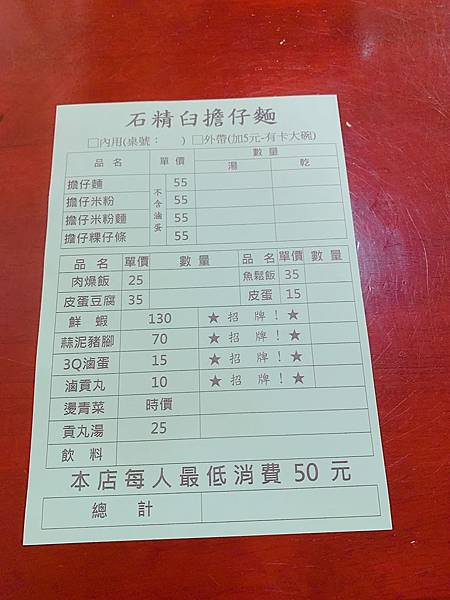 石精臼擔仔麵
□內用(桌號： ) □外帶(加5元-有卡大碗)
品名 單價 數量
湯 乾
擔仔麵 55
擔仔米粉 55
擔仔米粉麵 55
擔仔粿仔條 55
不含滷蛋
品名 單價 數量 品名 單價 數量
肉燥飯 25 魚鬆飯 35
皮蛋豆腐 35 皮蛋 15
鮮蝦 130 ★招牌！★
蒜泥豬腳 70 ★招牌！★
3Q滷蛋 15 ★招牌！★
滷貢丸 10 ★招牌！★
燙青菜 時價
貢丸湯 25
飲料
本店每人最低消費 50 元
總計